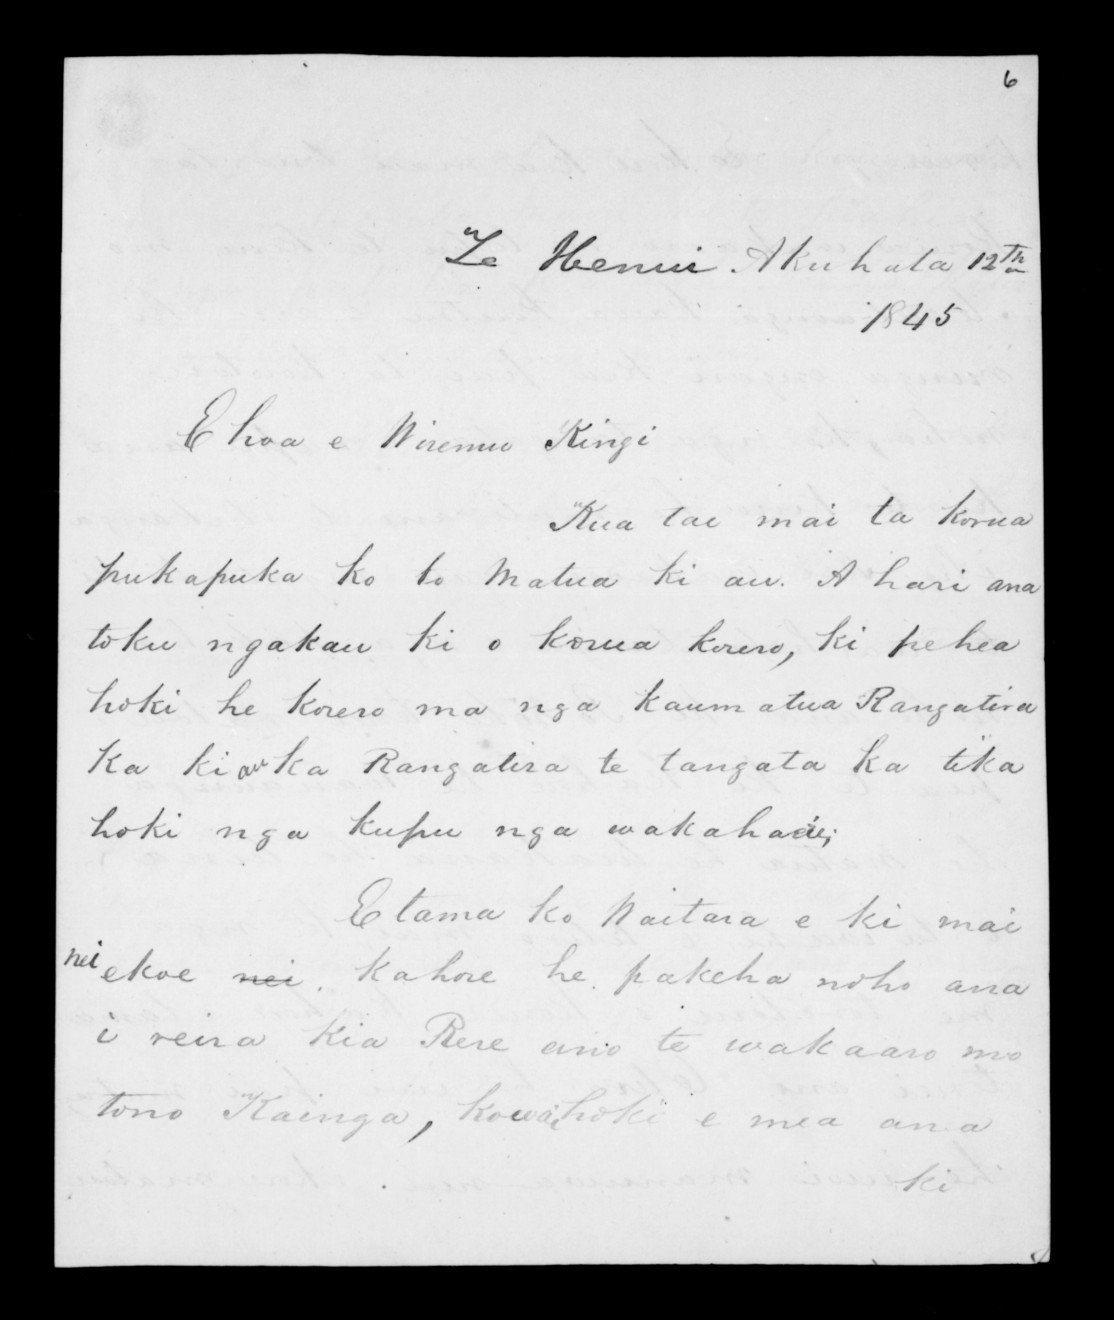 6
Te Henui Akuhata 12th
1845
E hoa e Wiremu Kingi
Kua tae mai ta korua
pukapuka ko to Matua ki au. A hari ana
toku ngakau ki o korua korero, ki pehea
hoki he korero ma nga kaumatua Rangatira
Ka ki au ka Rangatira te tangata ka tika
hoki nga kupu nga wakahaere;
E tama ko Waitara e ki mai
nei ekoe nei. Kahore he pakeha noho ana
i reira Kia Rere ano te wakaaro mo
tono Kainga, kowai hoki e mea ana
ki